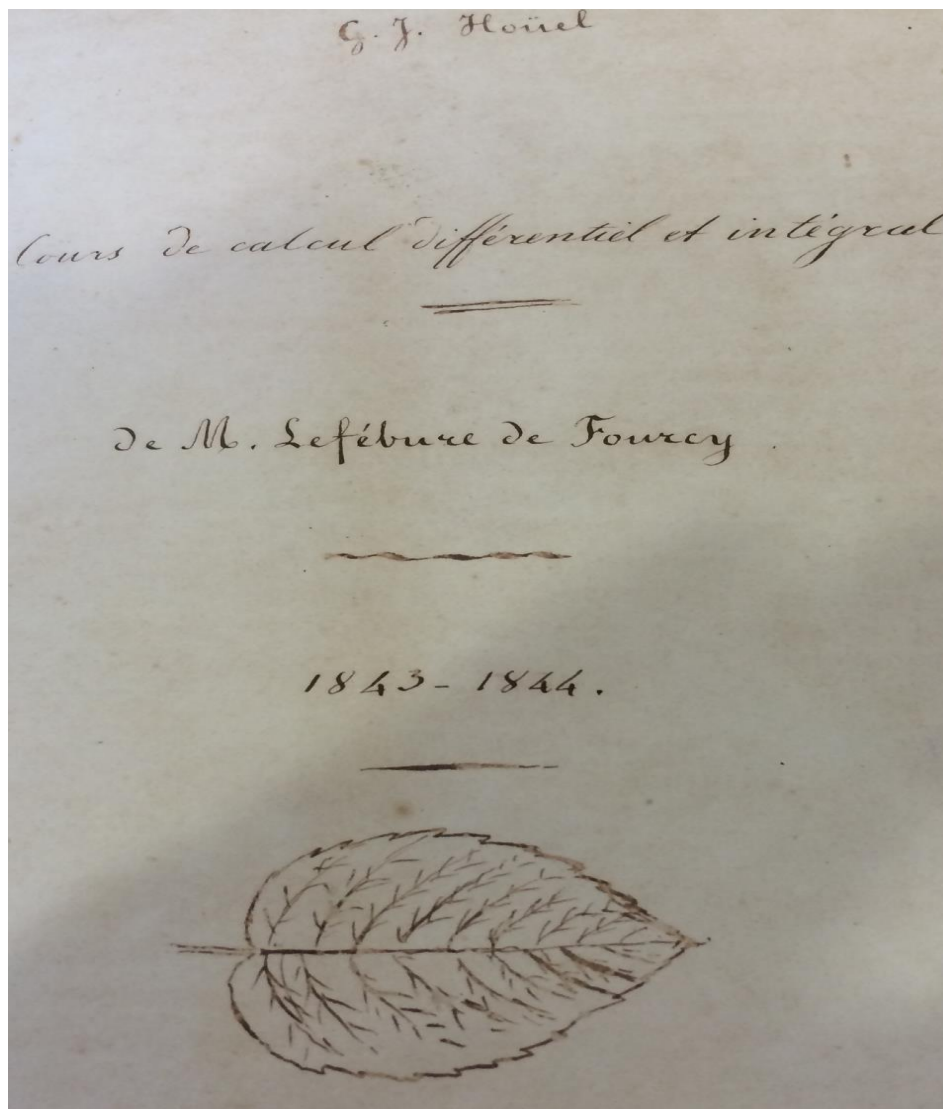 G. J. Hoüel
Cours de calcul différentiel et intégral
de M. Lefébure de Fourcy.
1843 - 1844.